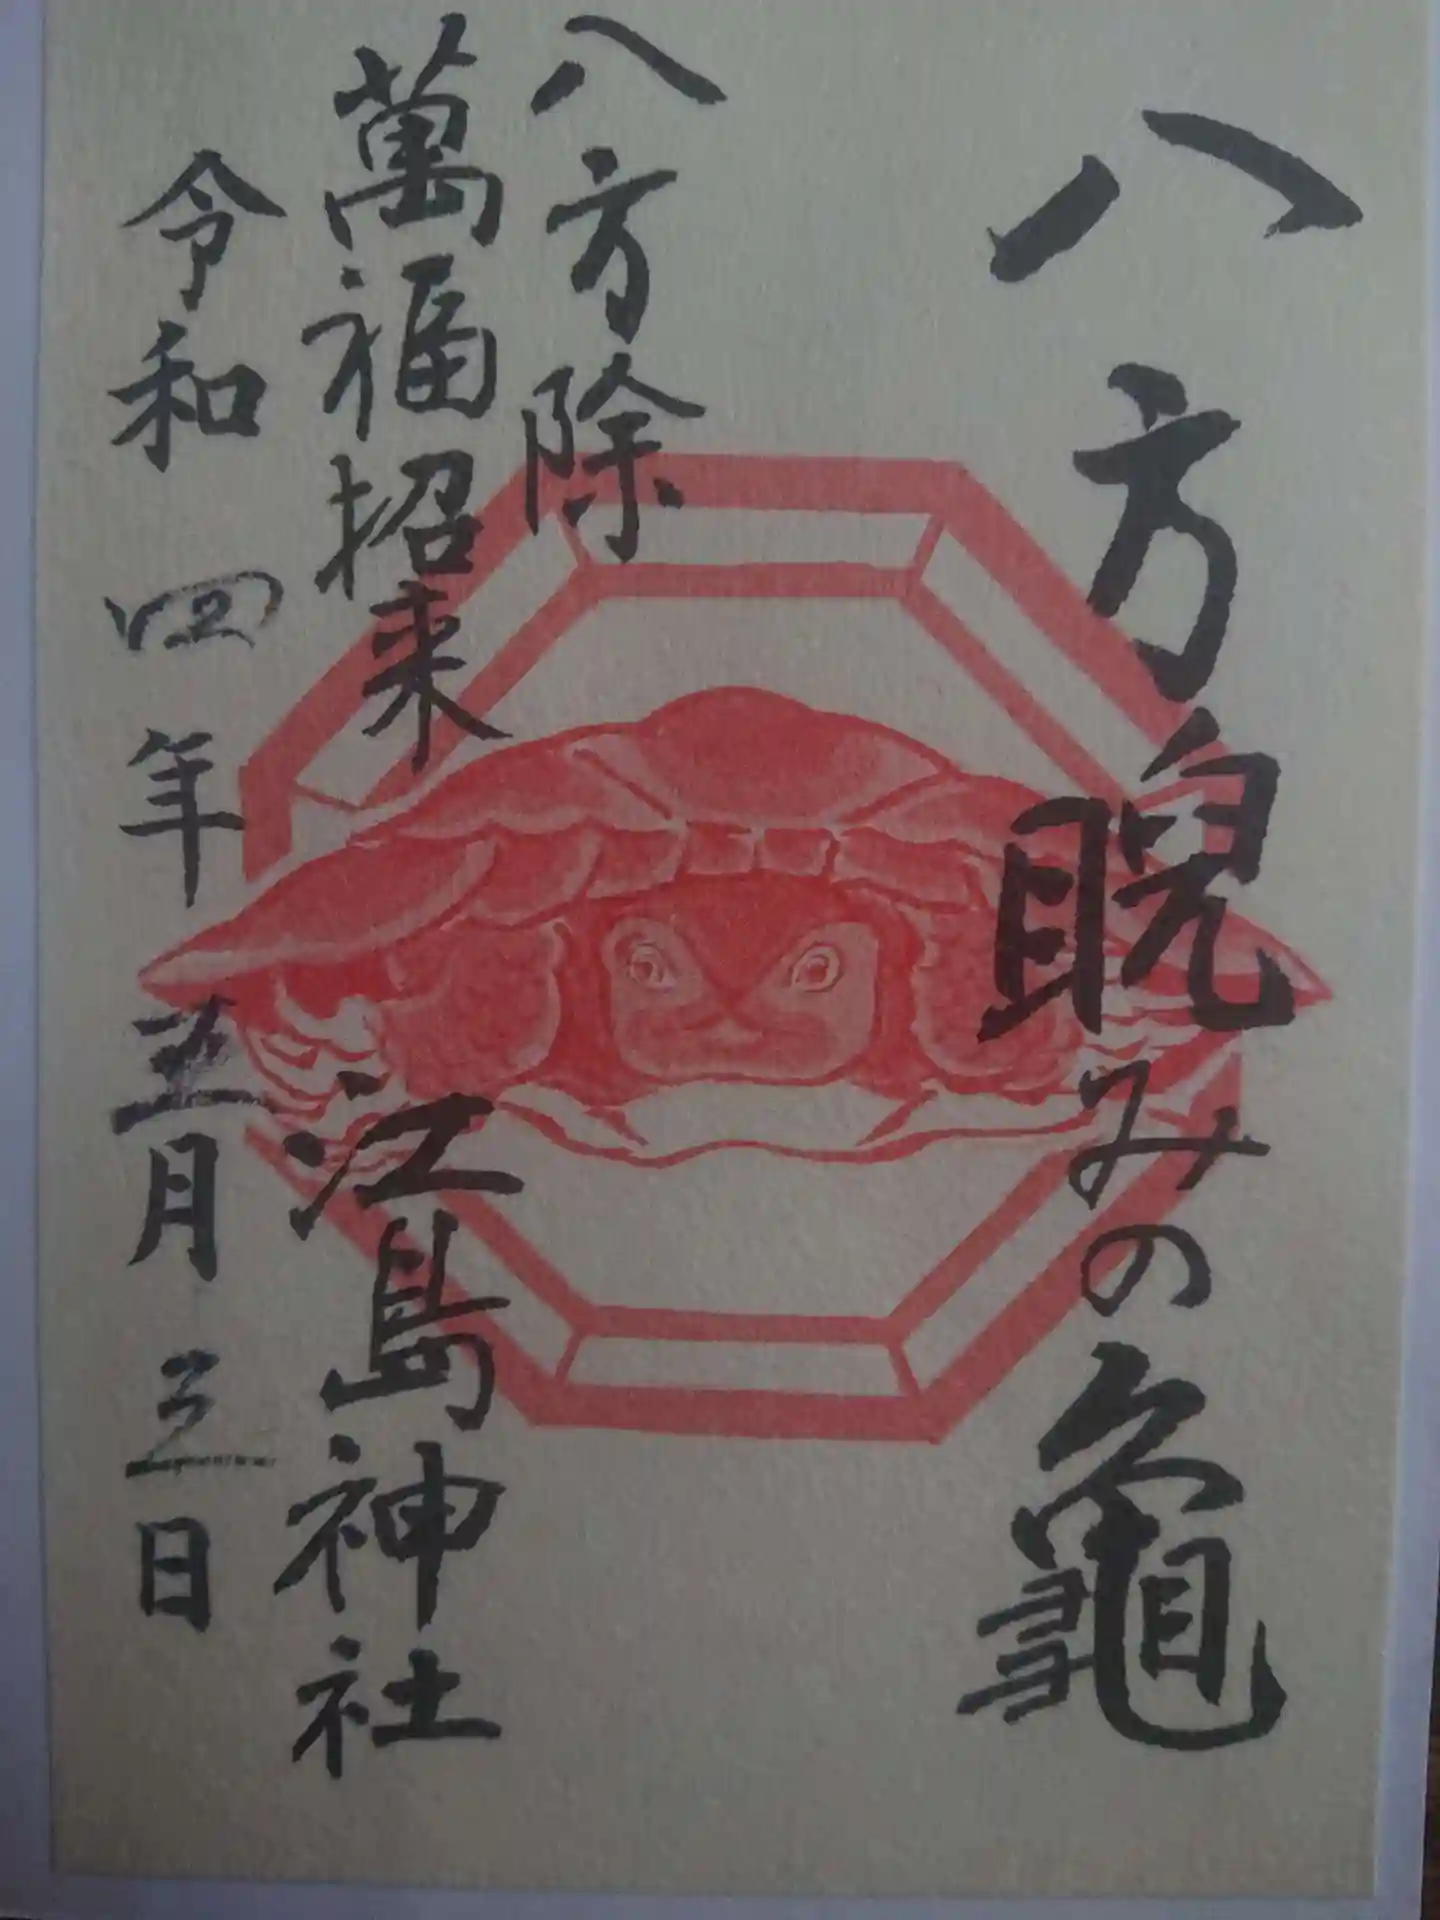 八方睨みの龜
八方除
萬福招来
江島神社
令和四年五月三日